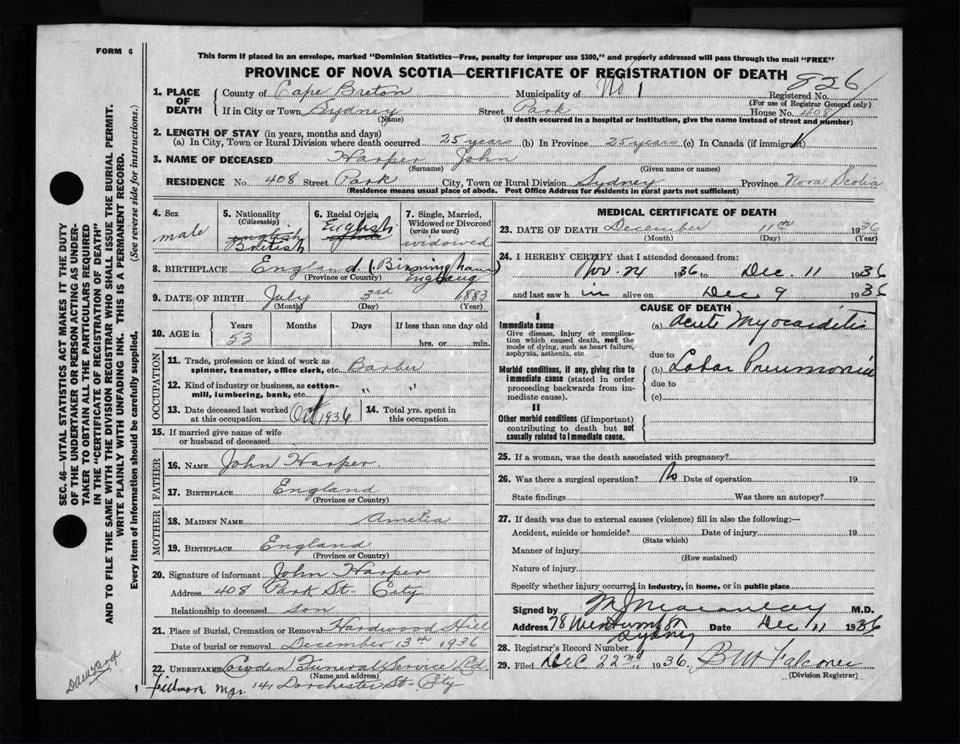 FORM 6
This form if placed in an envelope, marked "Dominion Statistics—Free, penalty for improper use $300," and properly addressed will pass through the mail "FREE"
PROVINCE OF NOVA SCOTIA—CERTIFICATE OF REGISTRATION OF DEATH
826
1. PLACE OF DEATH
County of Cape Breton Municipality of No 1 Registered No.
(For use of Registrar General only)
If in City or Town Sydney Street Park House No. 408
(Name) (If death occurred in a hospital or institution, give the name instead of street and number)
2. LENGTH OF STAY (in years, months and days)
(a) In City, Town or Rural Division where death occurred 25 years (b) In Province 25 years (c) In Canada (if immigrant)
3. NAME OF DECEASED Harper John
(Surname) (Given name or names)
RESIDENCE No. 408 Street Park City, Town or Rural Division Sydney Province Nova Scotia
(Residence means usual place of abode. Post Office Address for residents in rural parts not sufficient)
4. Sex male
5. Nationality (Citizenship) English British
6. Racial Origin English
7. Single, Married, Widowed or Divorced (write the word) widowed
8. BIRTHPLACE England (Birmingham England
(Province or Country)
9. DATE OF BIRTH July 3rd 1883
(Month) (Day) (Year)
10. AGE in Years 53 Months Days If less than one day old hrs. or min.
OCCUPATION
11. Trade, profession or kind of work as spinner, teamster, office clerk, etc. Barber
12. Kind of industry or business, as cotton-mill, lumbering, bank, etc. " "
13. Date deceased last worked at this occupation Oct 1936
14. Total yrs. spent in this occupation
15. If married give name of wife or husband of deceased
FATHER
16. NAME John Harper
17. BIRTHPLACE England
(Province or Country)
MOTHER
18. MAIDEN NAME Amelia
19. BIRTHPLACE England
(Province or Country)
20. Signature of informant John Harper
Address 408 Park St - City
Relationship to deceased son
21. Place of Burial, Cremation or Removal Hardwood Hill
Date of burial or removal December 13th 1936
22. UNDERTAKER Funeral Service Ltd
(Name and address)
Fillmore Mgr. 141 Dorchester St - City
MEDICAL CERTIFICATE OF DEATH
23. DATE OF DEATH December 11th 1936
(Month) (Day) (Year)
24. I HEREBY CERTIFY that I attended deceased from:
Nov. 24 1936 to Dec. 11 1936
and last saw him alive on Dec 9 1936
CAUSE OF DEATH
I
Immediate cause
Give disease, injury or complication which caused death, not the mode of dying, such as heart failure, asphyxia, asthenia, etc.
(a) Acute Myocarditis
due to
Morbid conditions, if any, giving rise to immediate cause (stated in order proceeding backwards from immediate).
(b) Lobar Pneumonia
due to
(c)
II
Other morbid conditions (if important) contributing to death but not causally related to immediate cause.
25. If a woman, was the death associated with pregnancy?
26. Was there a surgical operation? No Date of operation 19
State findings Was there an autopsy?
27. If death was due to external causes (violence) fill in also the following:—
Accident, suicide or homicide? Date of injury 19
(State which)
Manner of injury
(How sustained)
Nature of injury
Specify whether injury occurred in industry, in home, or in public place
Signed by M.D.
Address 78 Sydney Date Dec 11 1936
28. Registrar's Record Number
29. Filed Dec 22nd 1936 Falconer
(Division Registrar)
SEC. 46—VITAL STATISTICS ACT MAKES IT THE DUTY
OF THE UNDERTAKER OR PERSON ACTING AS UNDER-
TAKER TO OBTAIN ALL THE PARTICULARS REQUIRED
IN THE "CERTIFICATE OF REGISTRATION OF DEATH"
AND TO FILE THE SAME WITH THE DIVISION REGISTRAR WHO SHALL ISSUE THE BURIAL PERMIT.
WRITE PLAINLY WITH UNFADING INK. THIS IS A PERMANENT RECORD.
Every item of information should be carefully supplied. (See reverse side for instructions.)